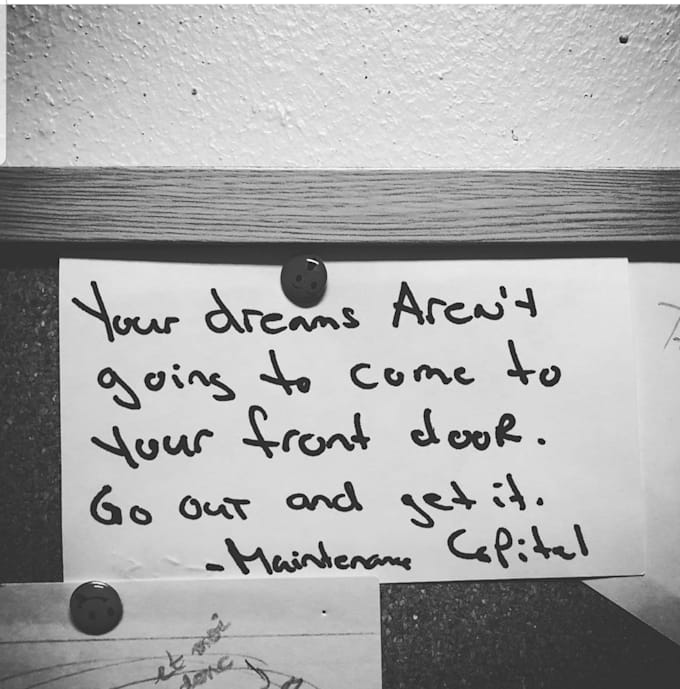 Your dreams Aren't
going to come to
Your front dooR.
Go out and get it.
- Maintenance Capital
et moi
donc